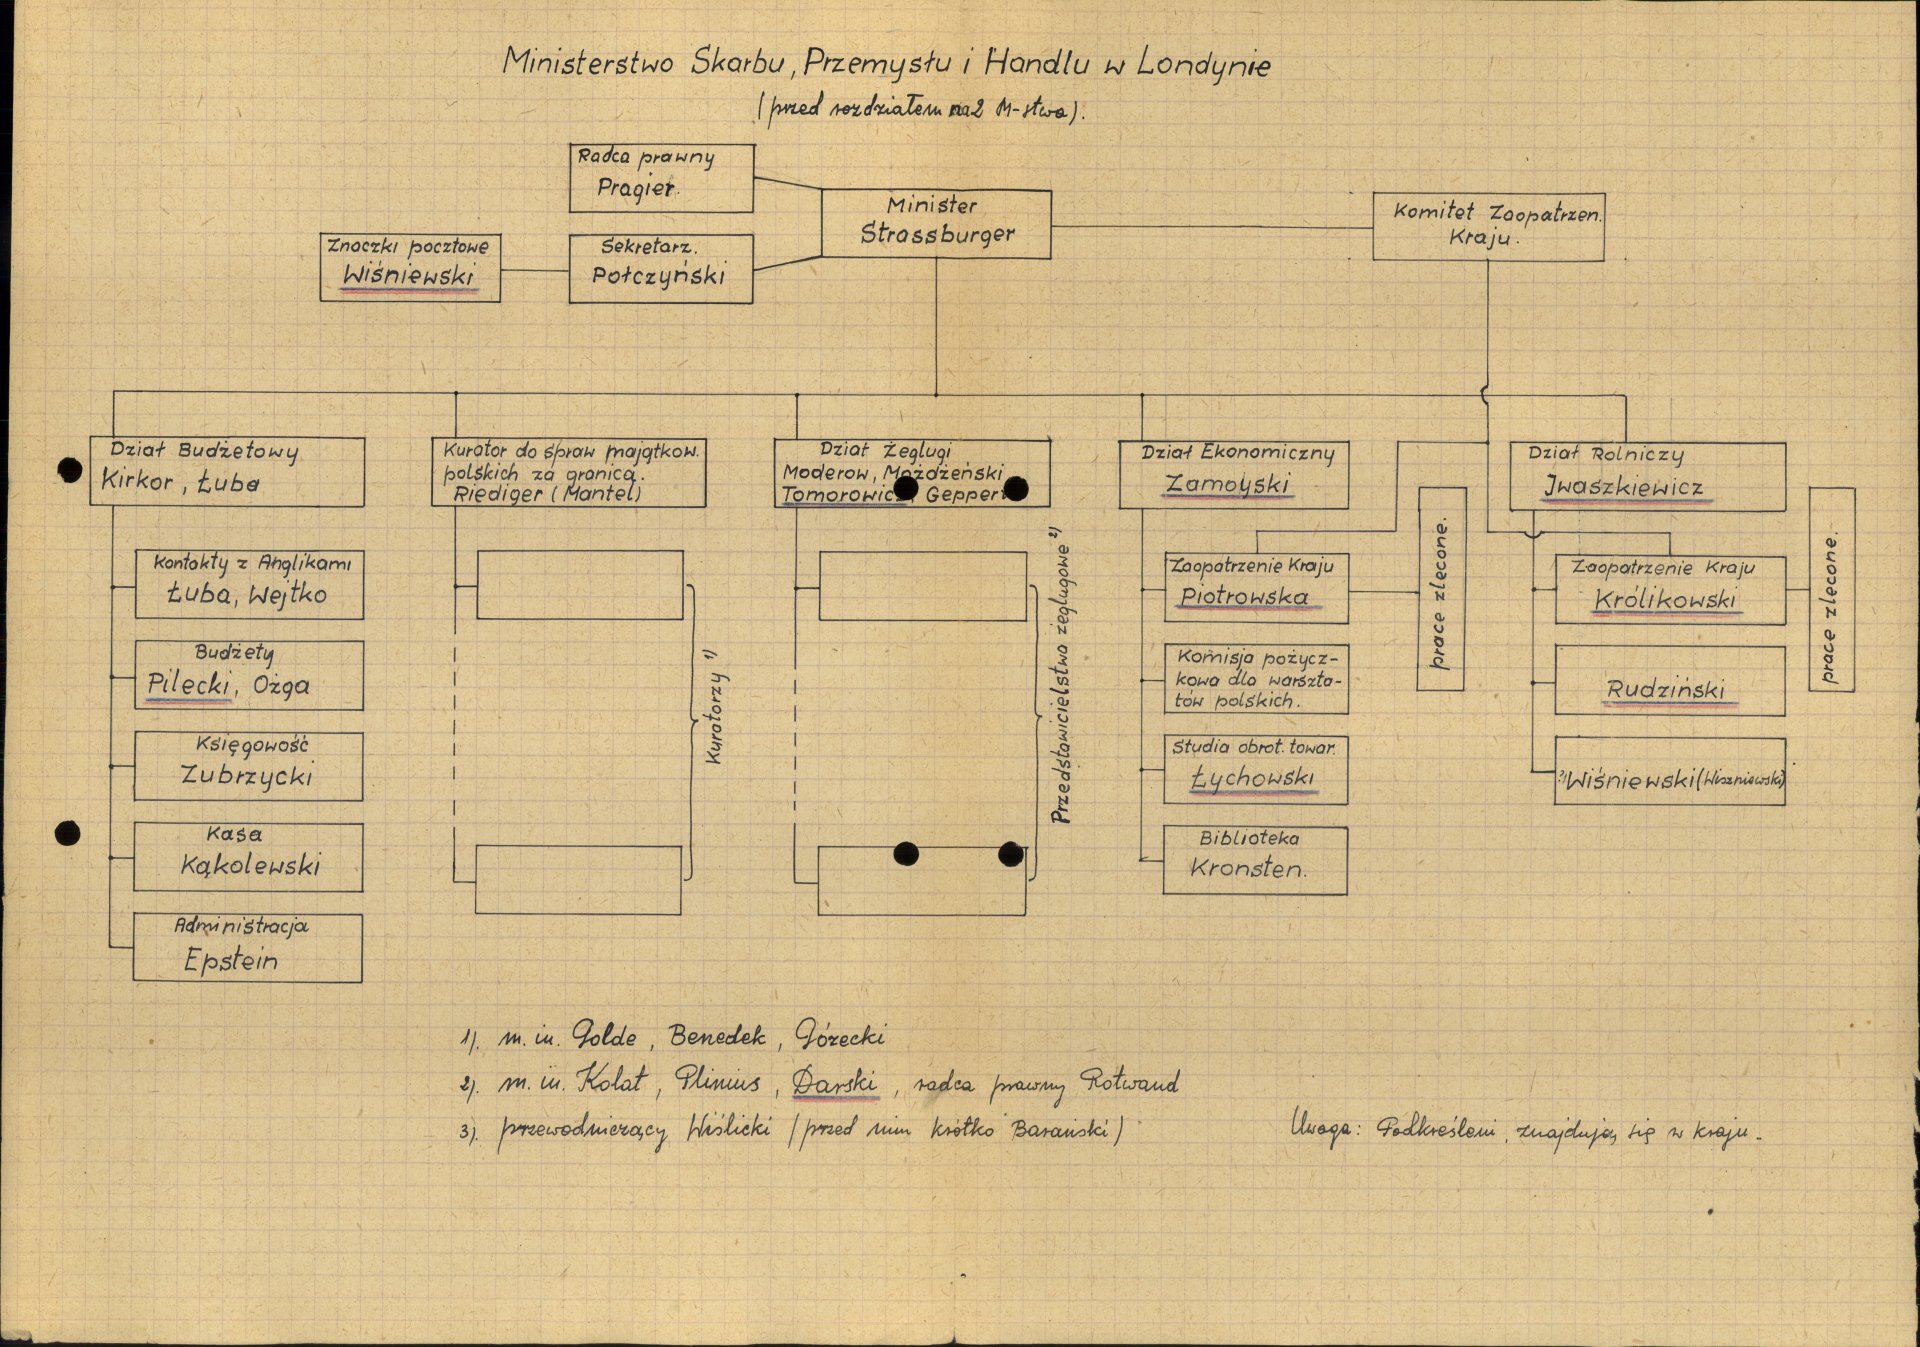 Ministerstwo Skarbu, Przemysłu i Handlu w Londynie
(przed rozdziałem na 2 M-stwa).
Radca prawny
Pragier.
Minister
Strassburger
Komitet Zaopatrzen.
Kraju.
Znaczki pocztowe
Wiśniewski
Sekretarz.
Połczyński
Dział Budżetowy
Kirkor, Łuba
Kurator do spraw majątkow.
polskich za granicą.
Riediger (Mantel)
Dział Żeglugi
Moderow, Możdżeński
Tomorowicz, Geppert
Dział Ekonomiczny
Zamoyski
Dział Rolniczy
Jwaszkiewicz
Kontakty z Anglikami
Łuba, Wejtko
Budżety
Pilecki, Ożga
Księgowość
Zubrzycki
Kasa
Kąkolewski
Administracja
Epstein
Kuratorzy 1)
Przedstawicielstwa żeglugowe 2)
Zaopatrzenie Kraju
Piotrowska
prace zlecone.
Komisja pożycz-
kowa dla warszta-
tów polskich.
Studia obrot. towar.
Łychowski
Biblioteka
Kronsten.
Zaopatrzenie Kraju
Królikowski
prace zlecone.
Rudziński
Wiśniewski (Wiszniewski)
1). m. in. Golde, Benedek, Górecki
2). m. in. Kolat, Plinius, Darski, radca prawny Rotwand
3). przewodniczący Wiślicki (przed nim krótko Barański)
Uwaga: Podkreśleni, znajdują się w kraju.